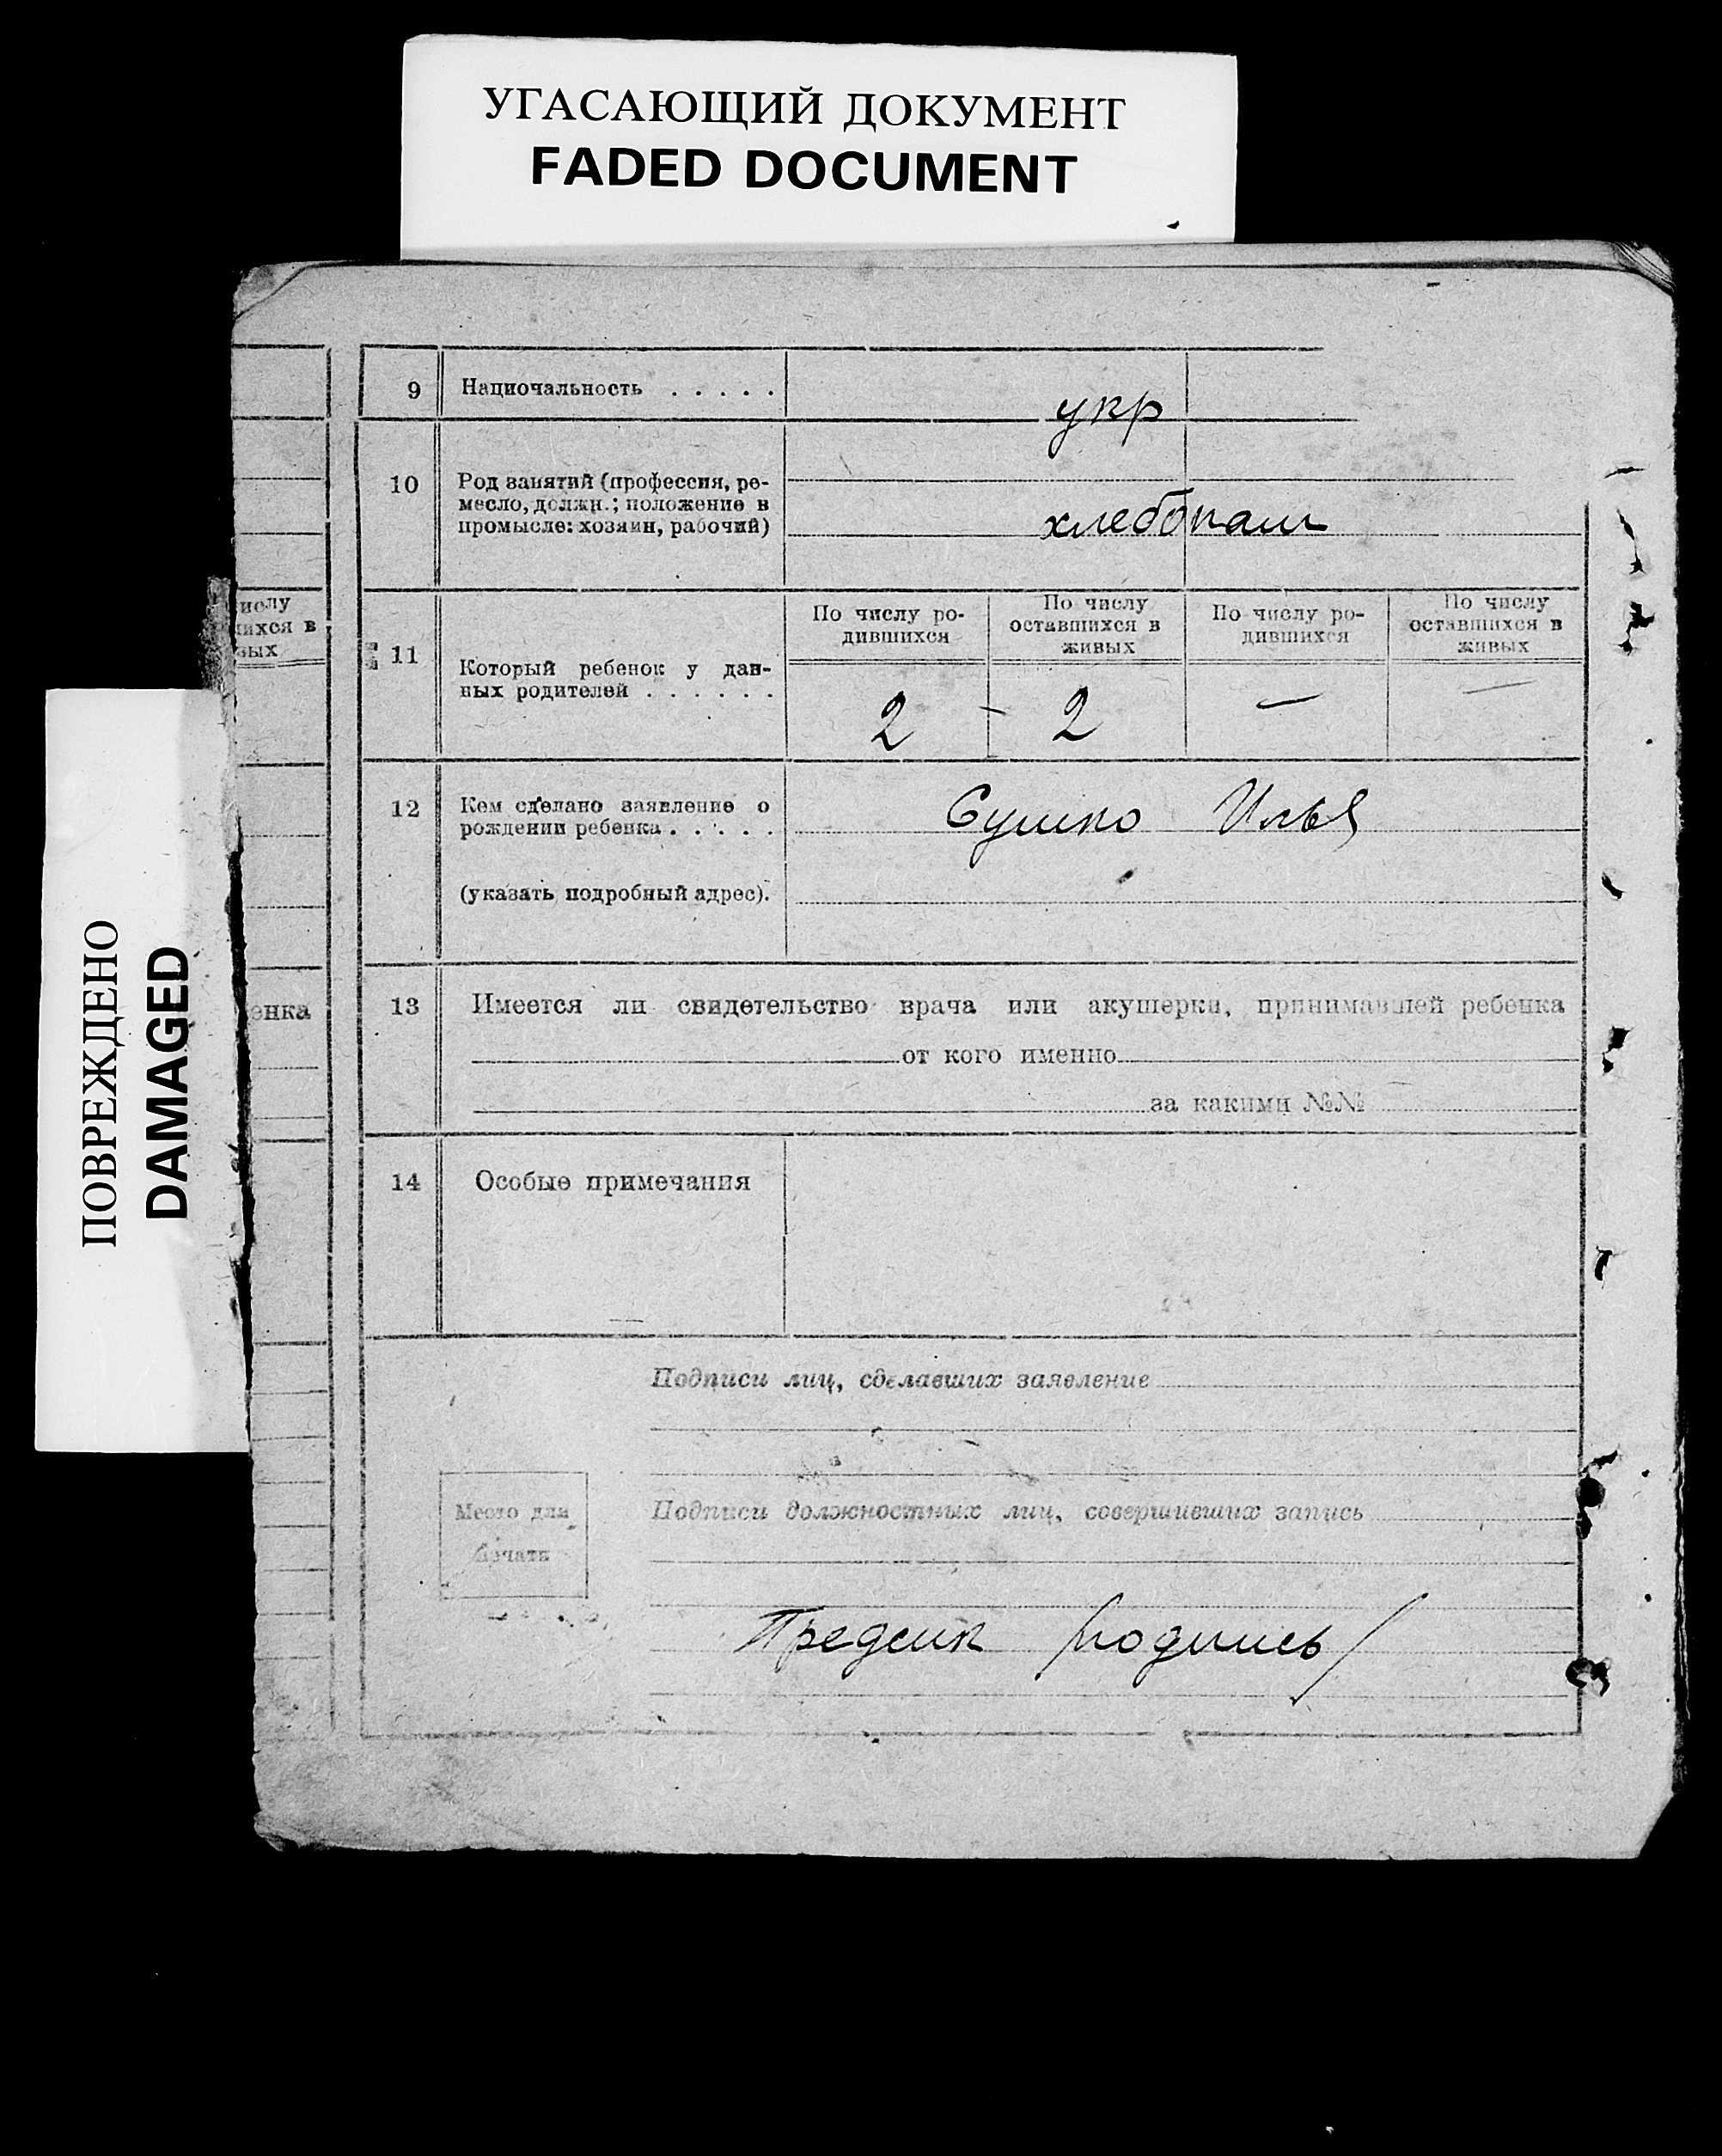 УГАСАЮЩИЙ ДОКУМЕНТ
FADED DOCUMENT
ПОВРЕЖДЕНО
DAMAGED
числу
шихся в
вых
енка
9 Национальность . . . . .
укр
10 Род занятий (профессия, ре-
месло, должн.; положение в
промысле: хозяин, рабочий)
хлебопаш
11 Который ребенок у дан-
ных родителей . . . . . .
По числу ро-
дившихся
По числу
оставшихся в
живых
По числу ро-
дившихся
По числу
оставшихся в
живых
2 - 2 — —
12 Кем сделано заявление о
рождении ребенка . . . . .
Сушко Илья
(указать подробный адрес).
13 Имеется ли свидетельство врача или акушерки, принимавшей ребенка
от кого именно
за какими №№
14 Особые примечания
Подписи лиц, сделавших заявление
Место для
печати
Подписи должностных лиц, совершивших запись
Предсик /подпись/